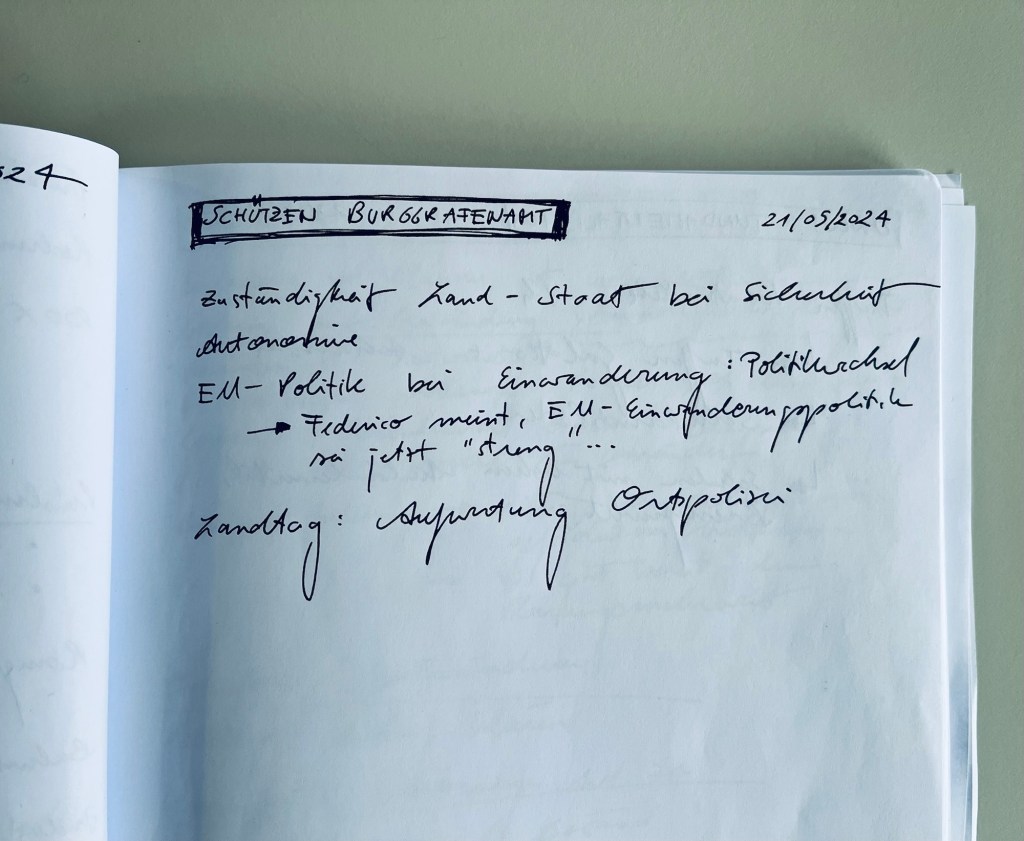 24
SCHÜTZEN BURGGRAFENAMT 21/05/2024
Zuständigkeit Land - Staat bei Sicherheit
Autonomie
EU-Politik bei Einwanderung: Politikwechsel
→ Federico meint, EU-Einwanderungspolitik
sei jetzt "streng"...
Landtag: Aufwertung Ortspolizei